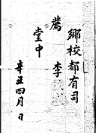 鄉校都有司
薦 李
堂中
辛丑四月 日